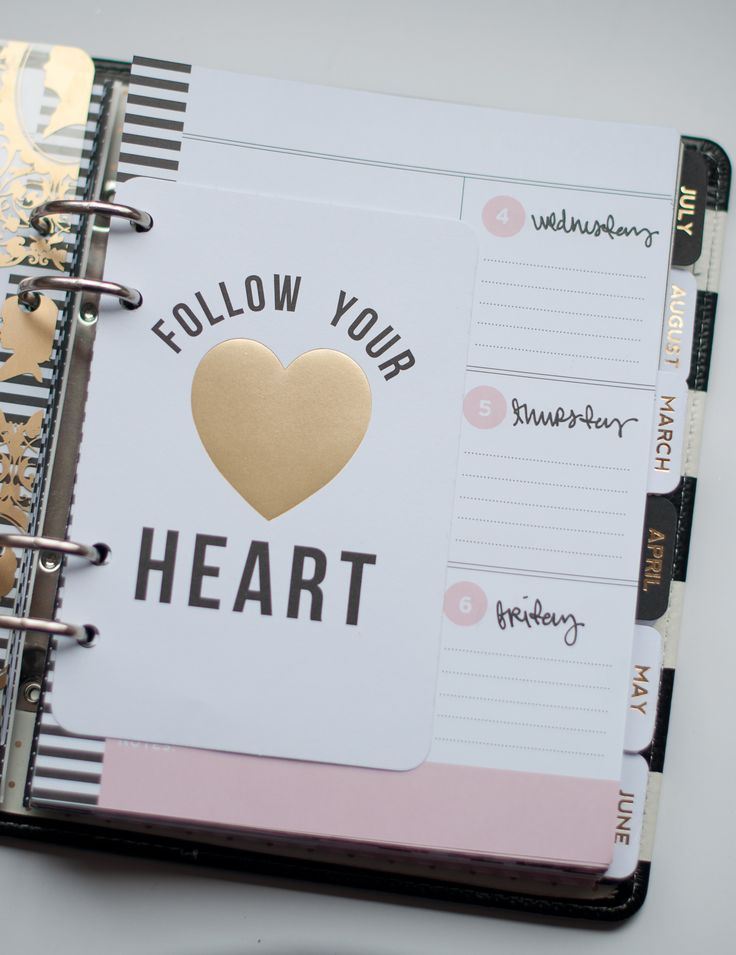 FOLLOW YOUR
HEART
4 wednesday
5 thursday
6 friday
NOTES:
JULY
AUGUST
MARCH
APRIL
MAY
JUNE